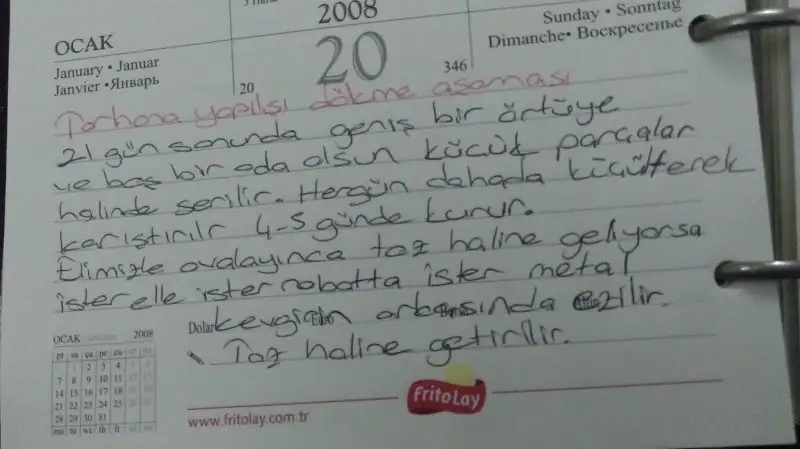 2008
Sunday • Sonntag
OCAK
January • Januar
Janvier • Январь
20
20
346
Dimanche • Воскресенье
Torhona yapılşı dökme aşaması
21 gün sonunda geniş bir örtüye
ve boş bir oda olsun küçük parçalar
halinde serilir. Hergün dahada küçülterek
karıştırılr 4-5 günde kurur.
Elimizle ovalayınca toz haline geliyorsa
ister elle ister robotta ister metal
kevgirin arkasında ezilir.
Toz haline getirilir.
Dolar
OCAK 2008
pt sa ça pe cu ct pz
1 2 3 4 5 6
7 8 9 10 11 12 13
14 15 16 17 18 19 20
21 22 23 24 25 26 27
28 29 30 31
mo tu we th fr sa su
FritoLay
www.fritolay.com.tr